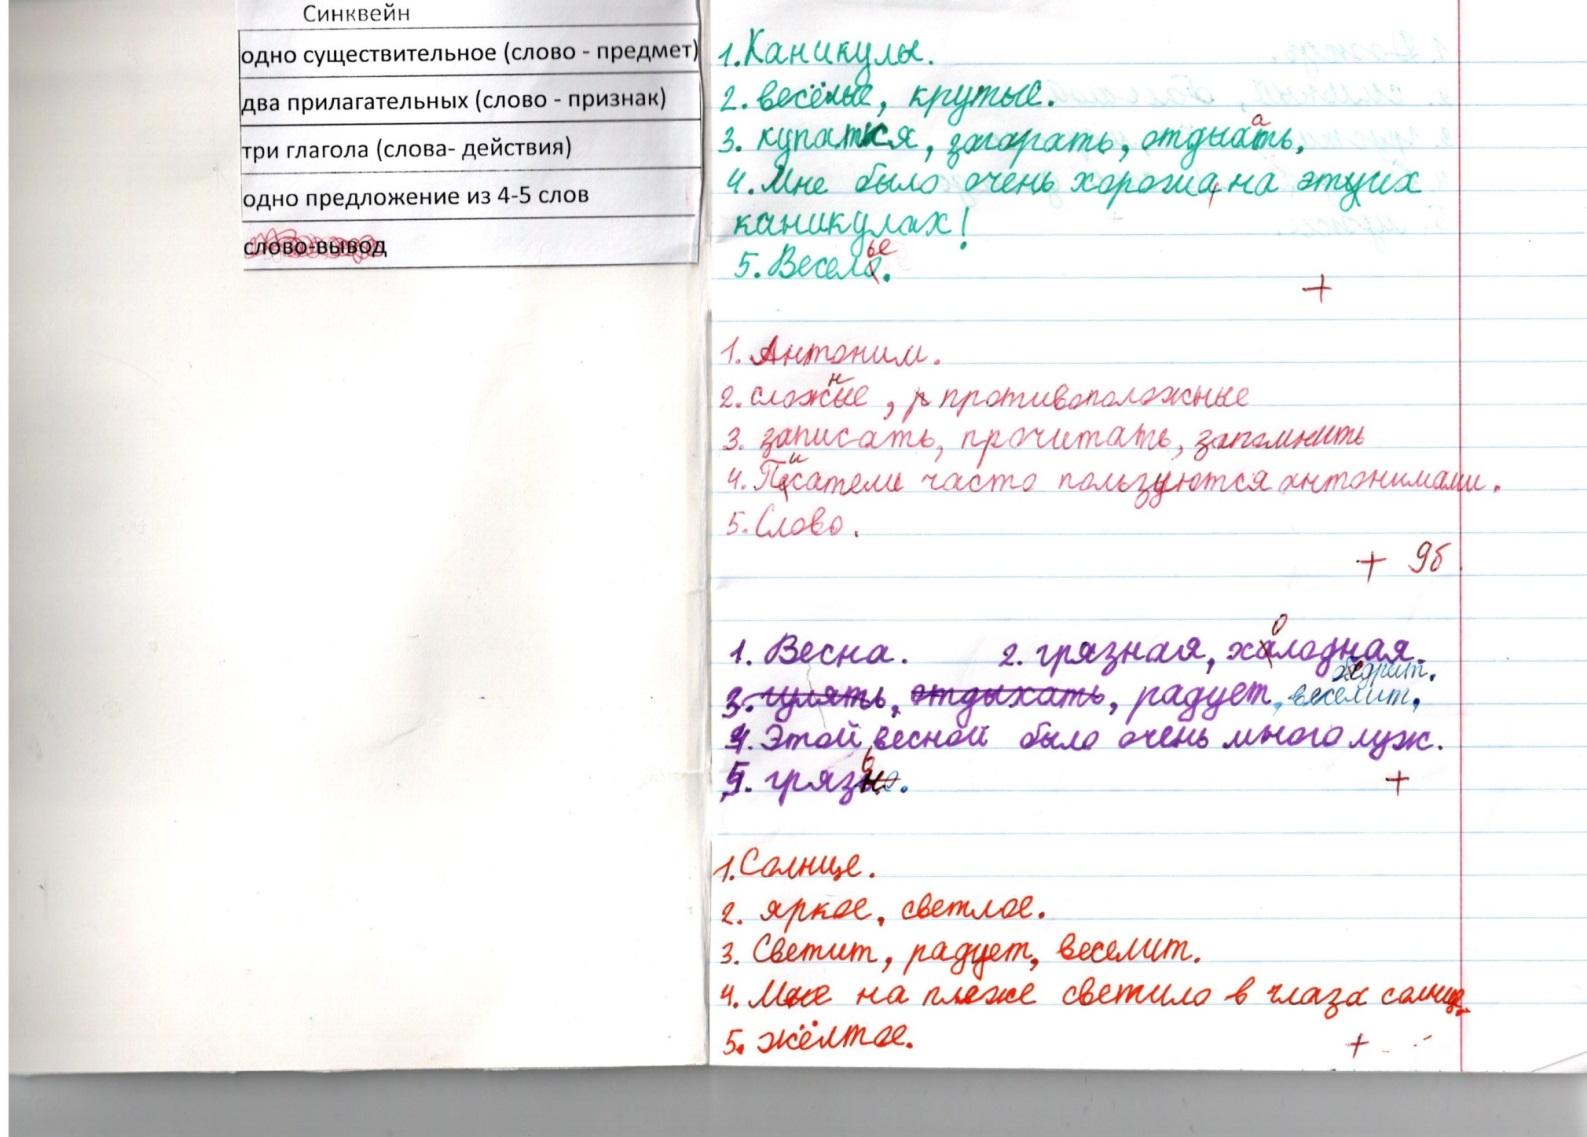 Синквейн
одно существительное (слово - предмет)
два прилагательных (слово - признак)
три глагола (слова- действия)
одно предложение из 4-5 слов
слово-вывод
1. Каникулы.
2. весёлые, крутые.
3. купаться, загорать, отдыать,
а
4. Мне было очень хороша на этих
каникулах!
5. Весело.
ье
+
1. Антоним.
2. сложные, противоположные
н
3. записать, прочитать, запомнить
4. Писатели часто пользуются антонимами.
и
5. Слово.
+ 9б
1. Весна. 2. грязная, халодная.
о
3. гулять, отдыхать, радует, веселит,
4. Этой весной было очень много луж.
5. грязно.
ь
+
1. Солнце.
2. яркое, светлое.
3. Светит, радует, веселит.
4. Мне на пляже светило в глаза солнце.
5. жёлтое.
+